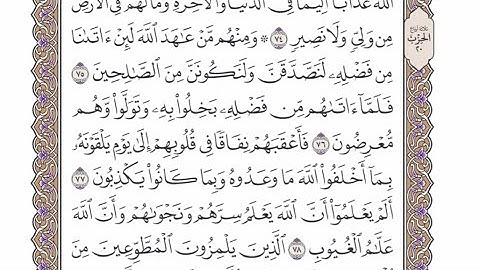 اللَّهُ عَذَابًا أَلِيمًا فِي الدُّنْيَا وَالْآخِرَةِ وَمَا لَهُمْ فِي الْأَرْضِ
مِن وَلِيٍّ وَلَا نَصِيرٍ ٧٤ ۞ وَمِنْهُم مَّنْ عَاهَدَ اللَّهَ لَئِنْ آتَانَا
مِن فَضْلِهِ لَنَصَّدَّقَنَّ وَلَنَكُونَنَّ مِنَ الصَّالِحِينَ ٧٥
فَلَمَّا آتَاهُم مِّن فَضْلِهِ بَخِلُوا بِهِ وَتَوَلَّوا وَّهُم
مُّعْرِضُونَ ٧٦ فَأَعْقَبَهُمْ نِفَاقًا فِي قُلُوبِهِمْ إِلَىٰ يَوْمِ يَلْقَوْنَهُ
بِمَا أَخْلَفُوا اللَّهَ مَا وَعَدُوهُ وَبِمَا كَانُوا يَكْذِبُونَ ٧٧
أَلَمْ يَعْلَمُوا أَنَّ اللَّهَ يَعْلَمُ سِرَّهُمْ وَنَجْوَاهُمْ وَأَنَّ اللَّهَ
عَلَّامُ الْغُيُوبِ ٧٨ الَّذِينَ يَلْمِزُونَ الْمُطَّوِّعِينَ مِنَ